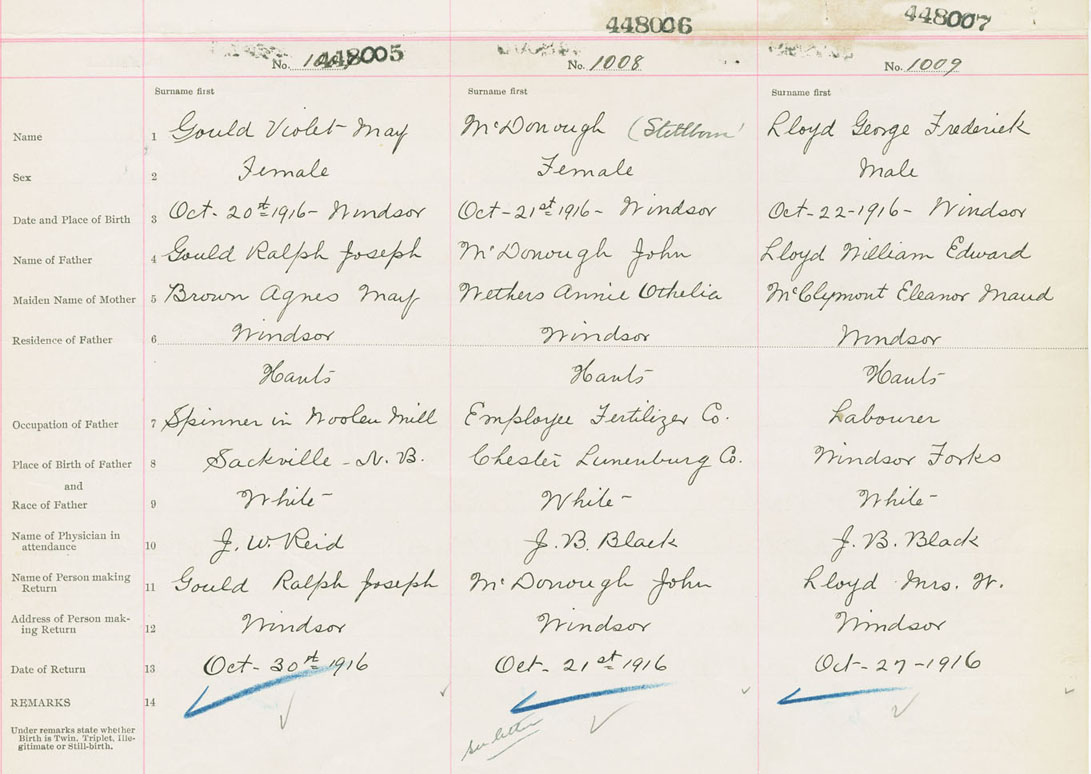 448005 448006 448007
No. No. 1008 No. 1009
Surname first Surname first Surname first
Name 1 Gould Violet May McDonough (Stillborn) Lloyd George Frederick
Sex 2 Female Female Male
Date and Place of Birth 3 Oct- 20st 1916- Windsor Oct- 21st 1916- Windsor Oct-22-1916- Windsor
Name of Father 4 Gould Ralph Joseph McDonough John Lloyd William Edward
Maiden Name of Mother 5 Brown Agnes May Wethers Annie Othelia McClymont Eleanor Maud
Residence of Father 6 Windsor Windsor Windsor
Hants Hants Hants
Occupation of Father 7 Spinner in Woolen Mill Employee Fertilizer Co. Labourer
Place of Birth of Father 8 Sackville - N.B. Chester Lunenburg Co. Windsor Forks
and
Race of Father 9 White- White- White-
Name of Physician in
attendance 10 J. W. Reid J. B. Black J. B. Black
Name of Person making
Return 11 Gould Ralph Joseph McDonough John Lloyd Mrs. W.
Address of Person mak-
ing Return 12 Windsor Windsor Windsor
Date of Return 13 Oct- 30st 1916 Oct- 21st 1916 Oct-27-1916
REMARKS 14
Under remarks state whether
Birth is Twin, Triplet, Ille-
gitimate or Still-birth.